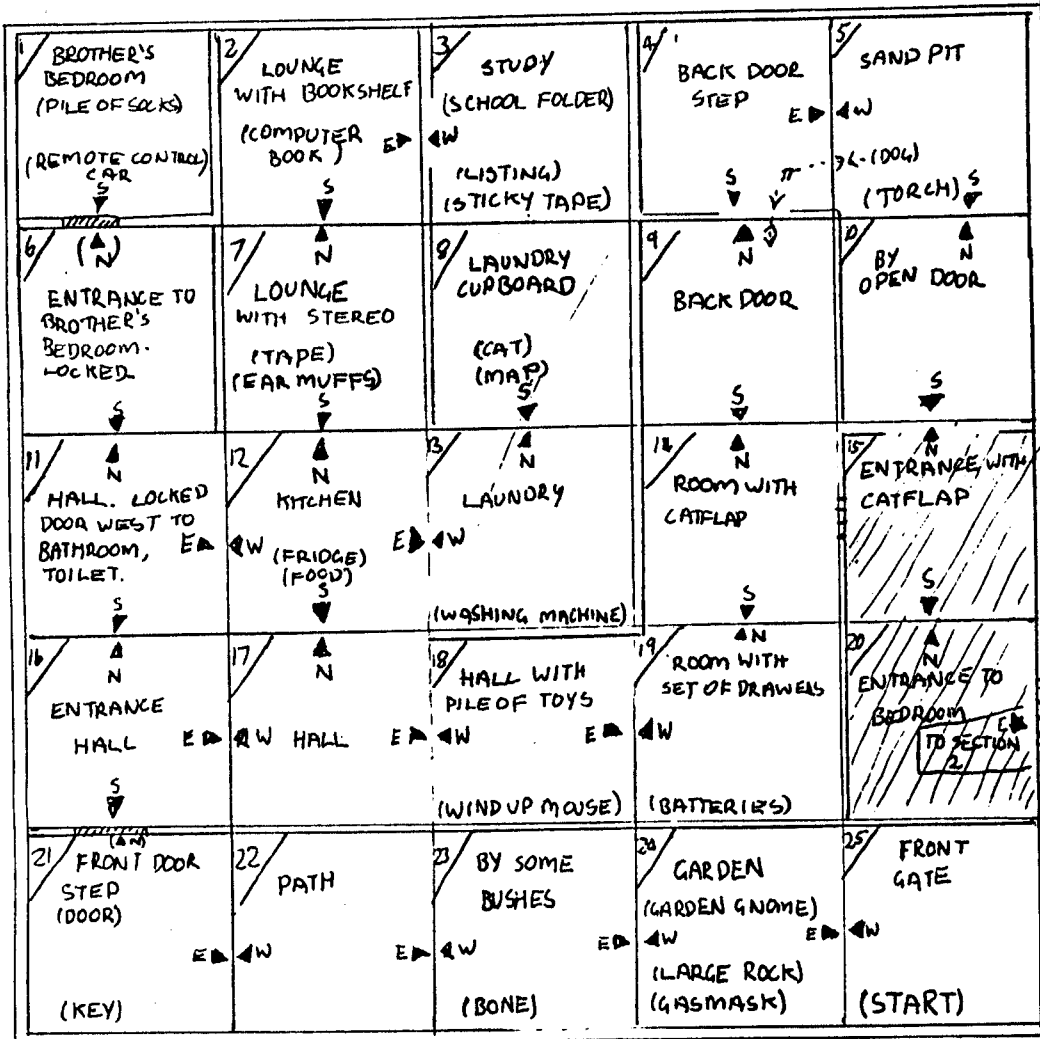 1
BROTHER'S
BEDROOM
(PILE OF SOCKS)
(REMOTE CONTROL)
CAR
S
2
LOUNGE
WITH BOOKSHELF
(COMPUTER
BOOK)
E
S
3
STUDY
(SCHOOL FOLDER)
W
(LISTING)
(STICKY TAPE)
4
BACK DOOR
STEP
E
S
5
SAND PIT
W
(DOG)
(TORCH)
S
6
(N)
ENTRANCE TO
BROTHER'S
BEDROOM.
LOCKED
S
7
N
LOUNGE
WITH STEREO
(TAPE)
(EAR MUFFS)
S
8
LAUNDRY
CUPBOARD
(CAT)
(MAP)
S
9
N
BACK DOOR
S
10
N
BY
OPEN DOOR
S
11
N
HALL. LOCKED
DOOR WEST TO
BATHROOM,
TOILET.
E
S
12
N
KITCHEN
W
E
(FRIDGE)
(FOOD)
S
13
N
LAUNDRY
W
(WASHING MACHINE)
14
N
ROOM WITH
CATFLAP
S
15
N
ENTRANCE WITH
CATFLAP
S
16
N
ENTRANCE
HALL
E
S
17
N
W
HALL
E
18
HALL WITH
PILE OF TOYS
W
E
(WIND UP MOUSE)
19
N
ROOM WITH
SET OF DRAWERS
W
(BATTERIES)
20
N
ENTRANCE TO
BEDROOM
E
TO SECTION
2
21
(N)
FRONT DOOR
STEP
(DOOR)
E
(KEY)
22
PATH
W
E
23
BY SOME
BUSHES
W
E
(BONE)
24
GARDEN
(GARDEN GNOME)
W
E
(LARGE ROCK)
(GASMASK)
25
FRONT
GATE
W
(START)